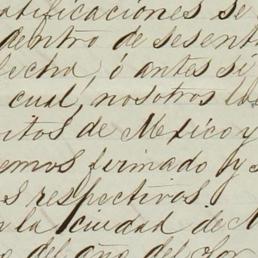 atificaciones se
dentro de sesent
fecha, ó antes si
cual, nosotros los
itos de Mexico y
emos firmado y s
s respectivos.
la ciudad de M
del año del Señor